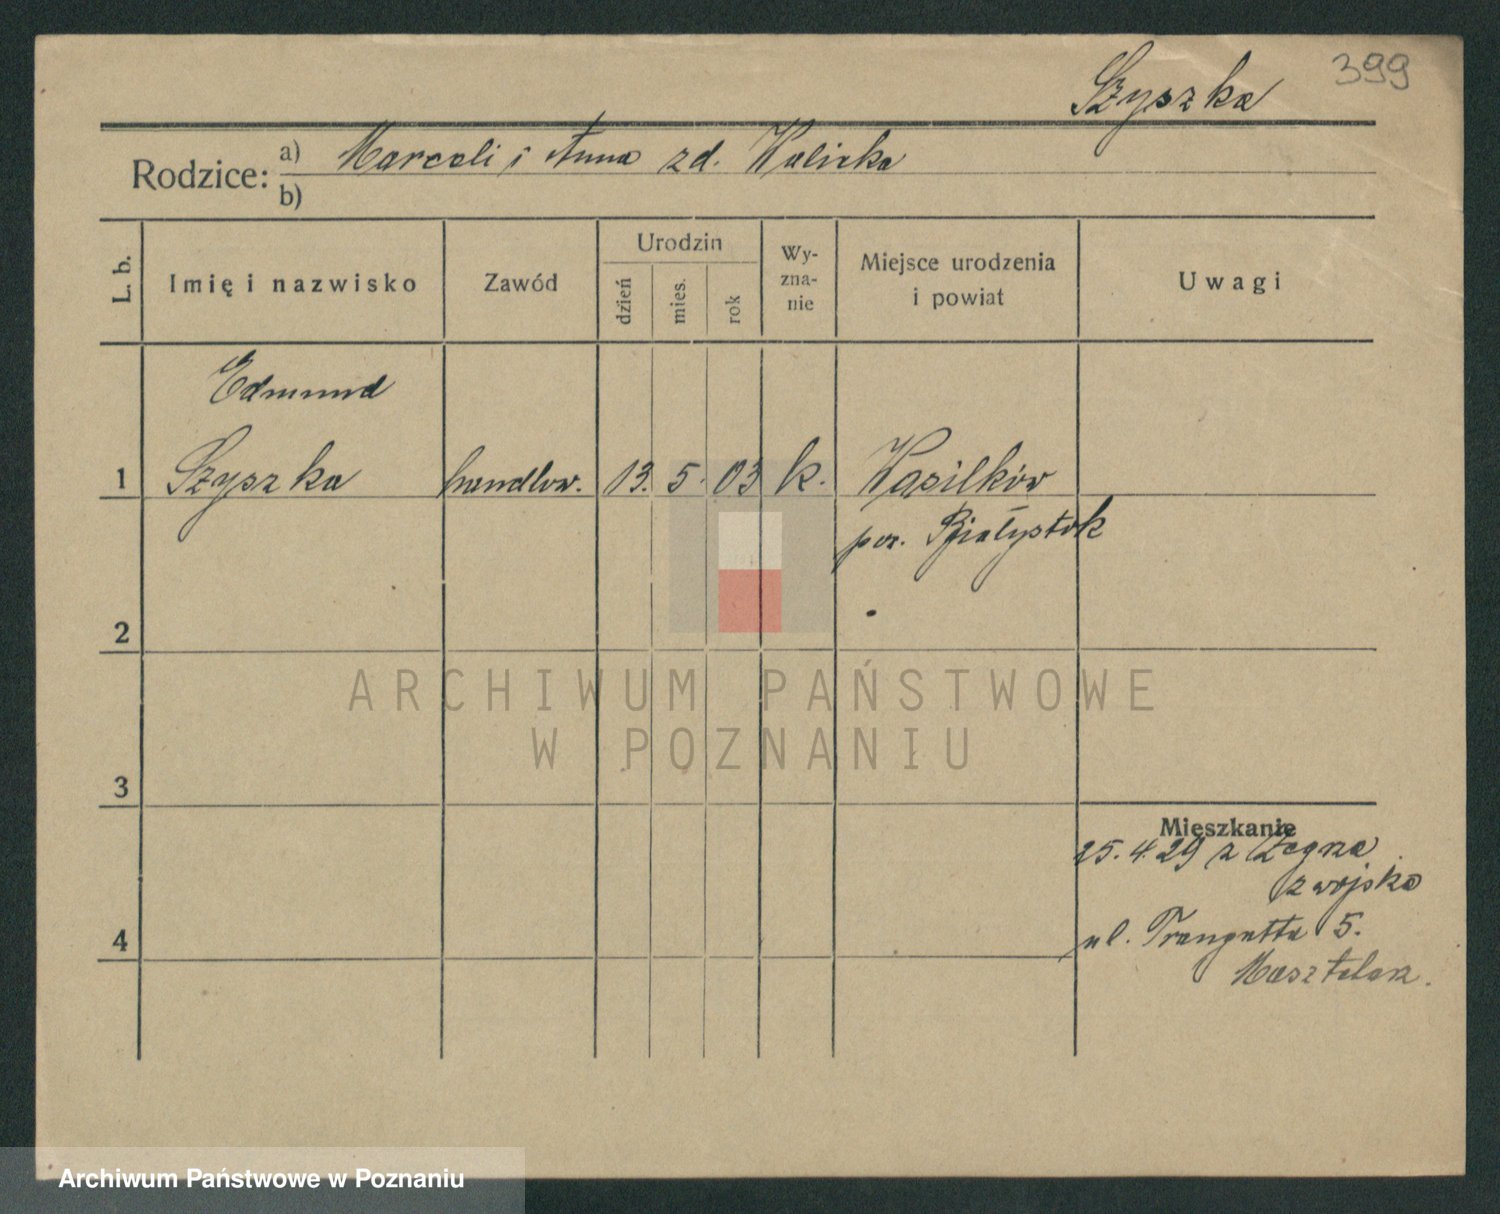 399
Szyszka
Rodzice: a) Marceli i Anna zd. Walicka
b)
L. b. Imię i nazwisko Zawód Urodzin dzień mies. rok Wy-zna-nie Miejsce urodzenia i powiat Uwagi
Edmund
1 Szyszka handlow. 13. 5. 03 k. Wasilków
pow. Białystok
2
3
Mieszkanie
25.4.29 z
z wojska
4
ul. Trauguta 5.
Masztalarz.
ARCHIWUM PAŃSTWOWE
W POZNANIU
Archiwum Państwowe w Poznaniu